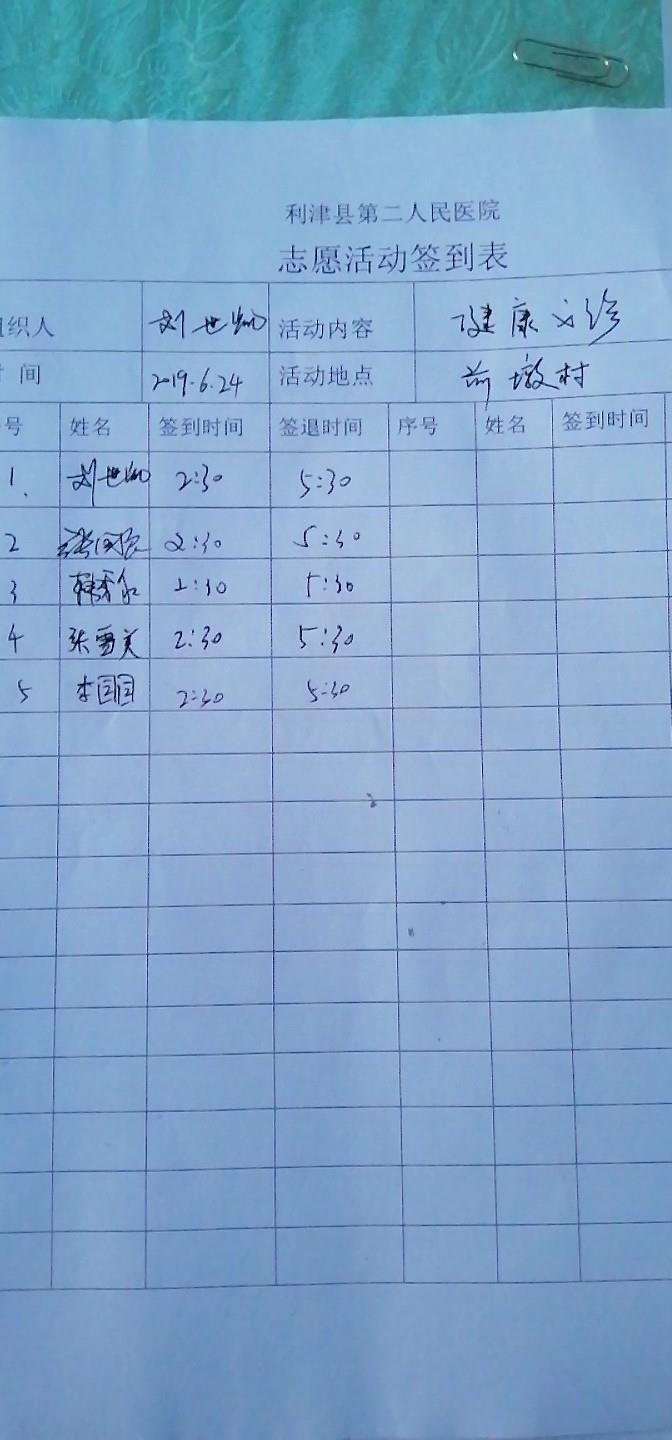 利津县第二人民医院
志愿活动签到表
组织人 刘世 活动内容 健康义诊
时间 2019.6.24 活动地点 前墩村
号 姓名 签到时间 签退时间 序号 姓名 签到时间
1. 刘世 2:30 5:30
2 2:30 5:30
3 2:30 5:30
4 张雪美 2:30 5:30
5 李囯囯 2:30 5:30